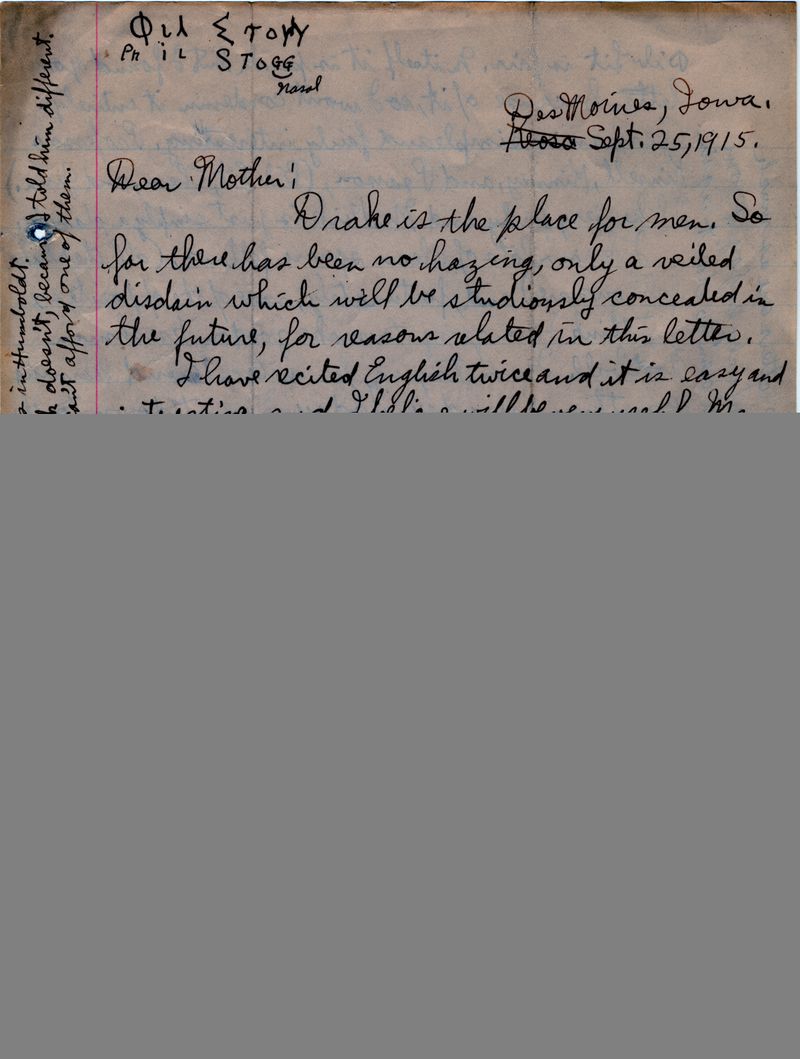 Φιλ ΣΤΟΓΓ
Ph i L STOGG
Nasal
Des Moines, Iowa.
Keosa Sept. 25, 1915.
Dear Mother:
Drake is the place for men. So
far there has been no hazing, only a veiled
disdain which will be studiously concealed in
the future, for reasons related in this letter.
I have recited English twice and it is easy and
and I will be very
in Humboldt.
doesn't, because I told him different.
can't afford one of them.